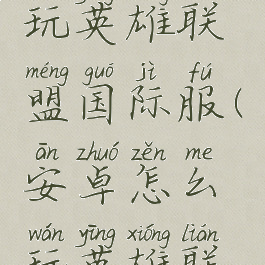 玩英雄联
méng guó jì fú
盟国际服(
ān zhuó zěn me
安卓怎么
wán yīng xióng lián
玩英雄联